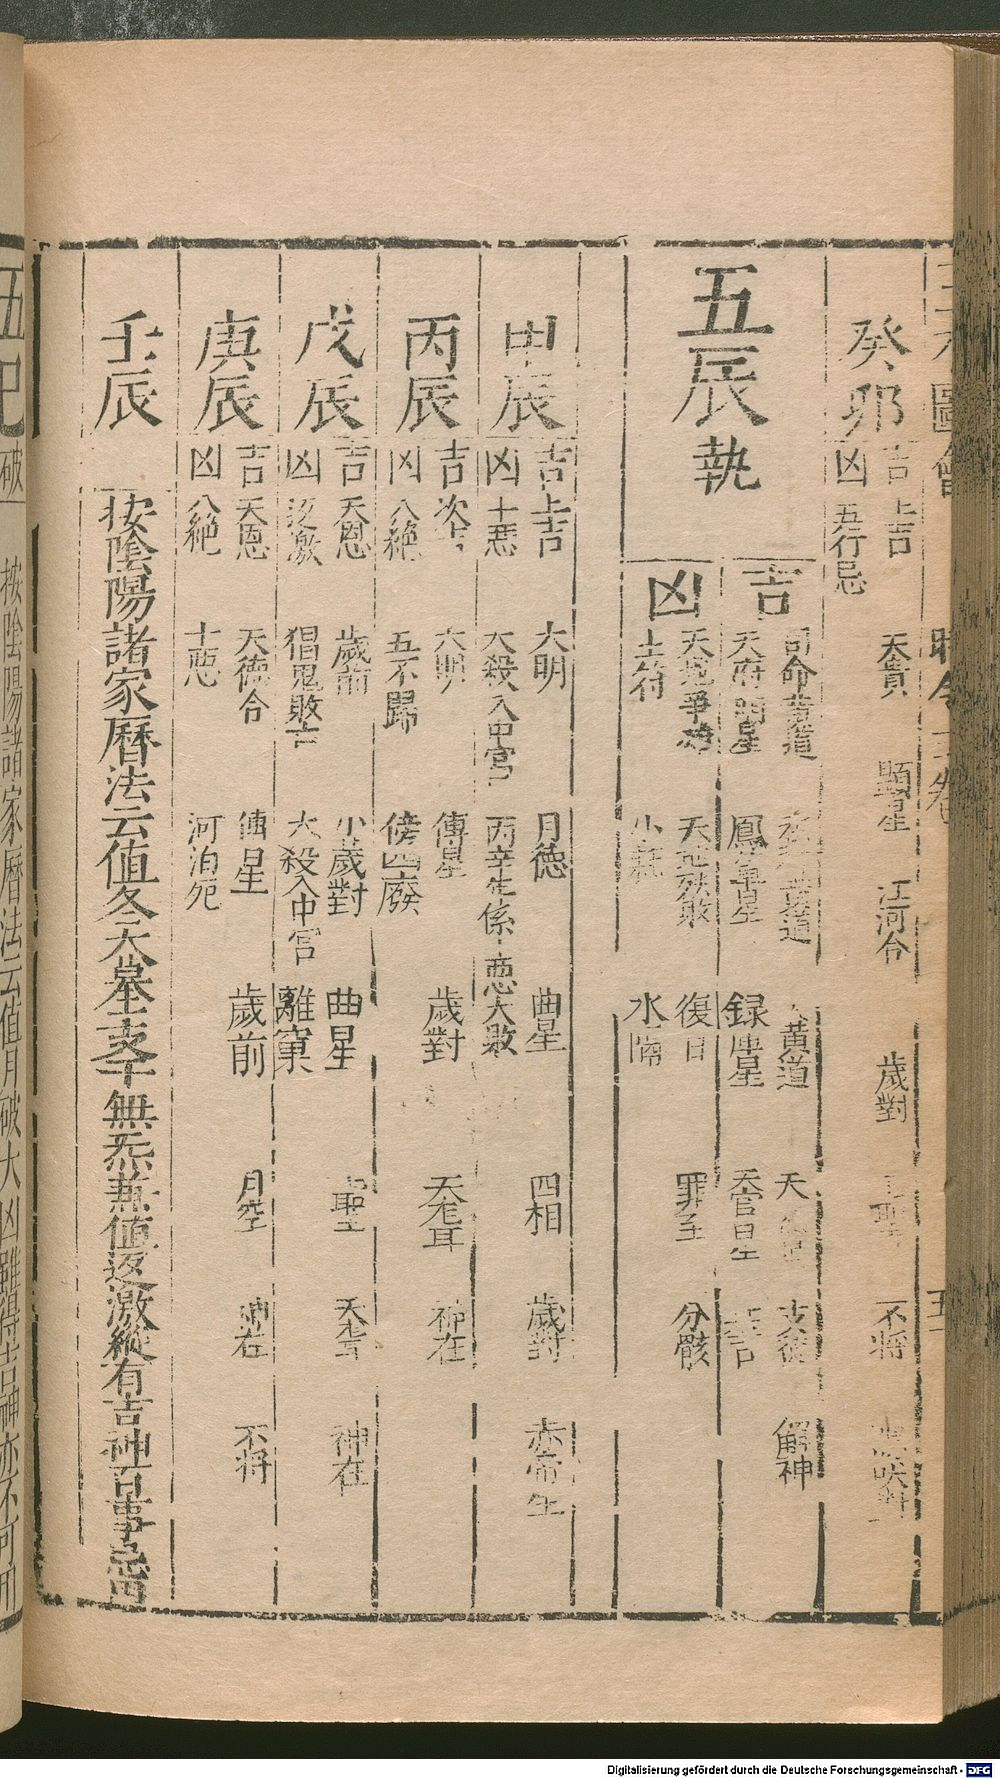 癸卯
吉 上吉 天貴 顯星 江河合 歲對 不將
凶 五行忌
五辰執
吉 司命黃道 黃道 黃道 天 支德 解神
天府明星 鳳輦星 録庫星 天官星
凶 天 爭雄 天地殃敗 復日 罪至 分骸
土符 小耗 水隔
甲辰
吉 上吉 大明 月德 曲星 四相 歲對 赤帝生
凶 十惡 大殺入中宮 丙辛生係 惡大敗
丙辰
吉 次吉 六明 傳星 歲對 天聾 神在
凶 八絕 五不歸 傍四廢
戊辰
吉 天恩 歲前 小歲對 曲星 聖 天聾 神在
凶 返激 猖鬼敗亡 大殺入中宮 離窠
庚辰
吉 天恩 天德合 傳星 歲前 月空 神在 不將
凶 八絕 十惡 河泊死
壬辰
按陰陽諸家曆法云值冬天墓支干無炁兼值返激縱有吉神百事忌用
五巳破 按陰陽諸家曆法云值月破大凶雖得吉神亦不可用
Digitalisierung gefördert durch die Deutsche Forschungsgemeinschaft - DFG